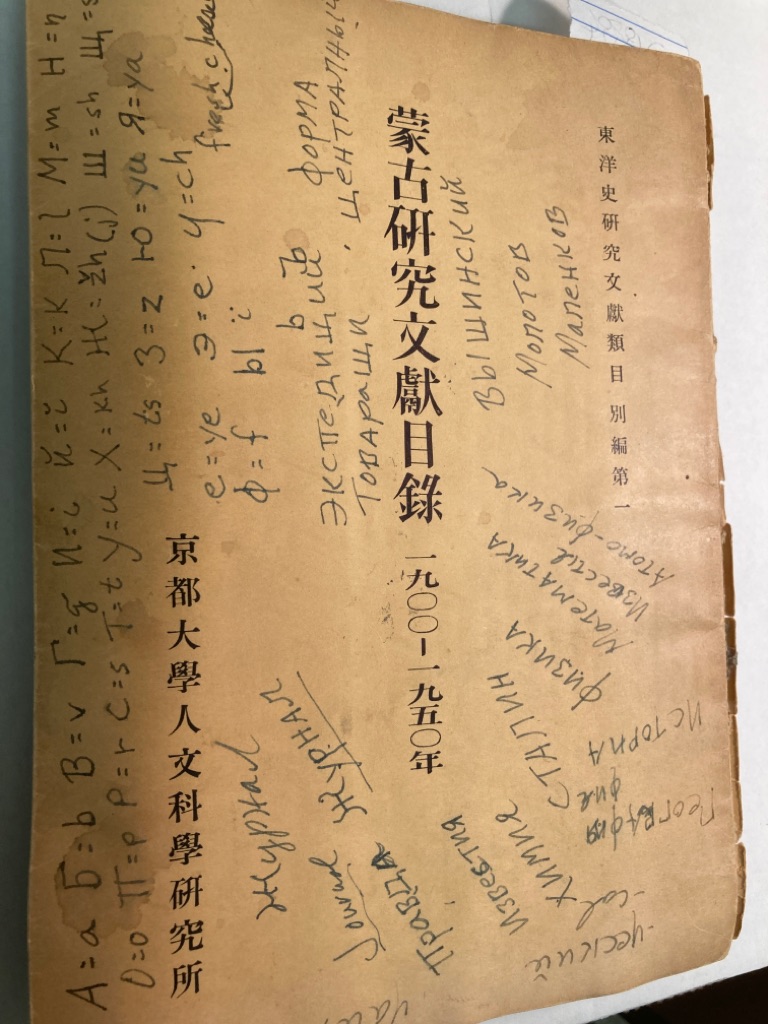 東洋史研究文獻類目 別編第一
蒙古研究文獻目錄 一九〇〇—一九五〇年
京都大學人文科學研究所
A=a Б=b В=v Г=g И=i Й=ĭ К=к Л=l М=m Н=n
О=o П=p Р=r С=s Т=t У=u Х=kh Ж=žh(j) Ш=sh Щ=s
Ц=ts З=z Ю=yu Я=ya
е=ye Э=e Ч=ch
Ф=f Ы
fresh
ЭКСПЕДИЦИЙ
Ь Ъ
ФОРМА
ТОВАРАЩИ
ЦЕНТРАЛНЫЙ
ВЫШИНСКИЙ
МОЛОТОВ
МАЛЕНКОВ
Атомо-физика
Известие
Математика
физика
СТАЛИН
химие
ИЗВЕСТИЯ
Правда
Журнал
ЖУРНАЛ
ИСТОРИА
фие
фия
-ческий